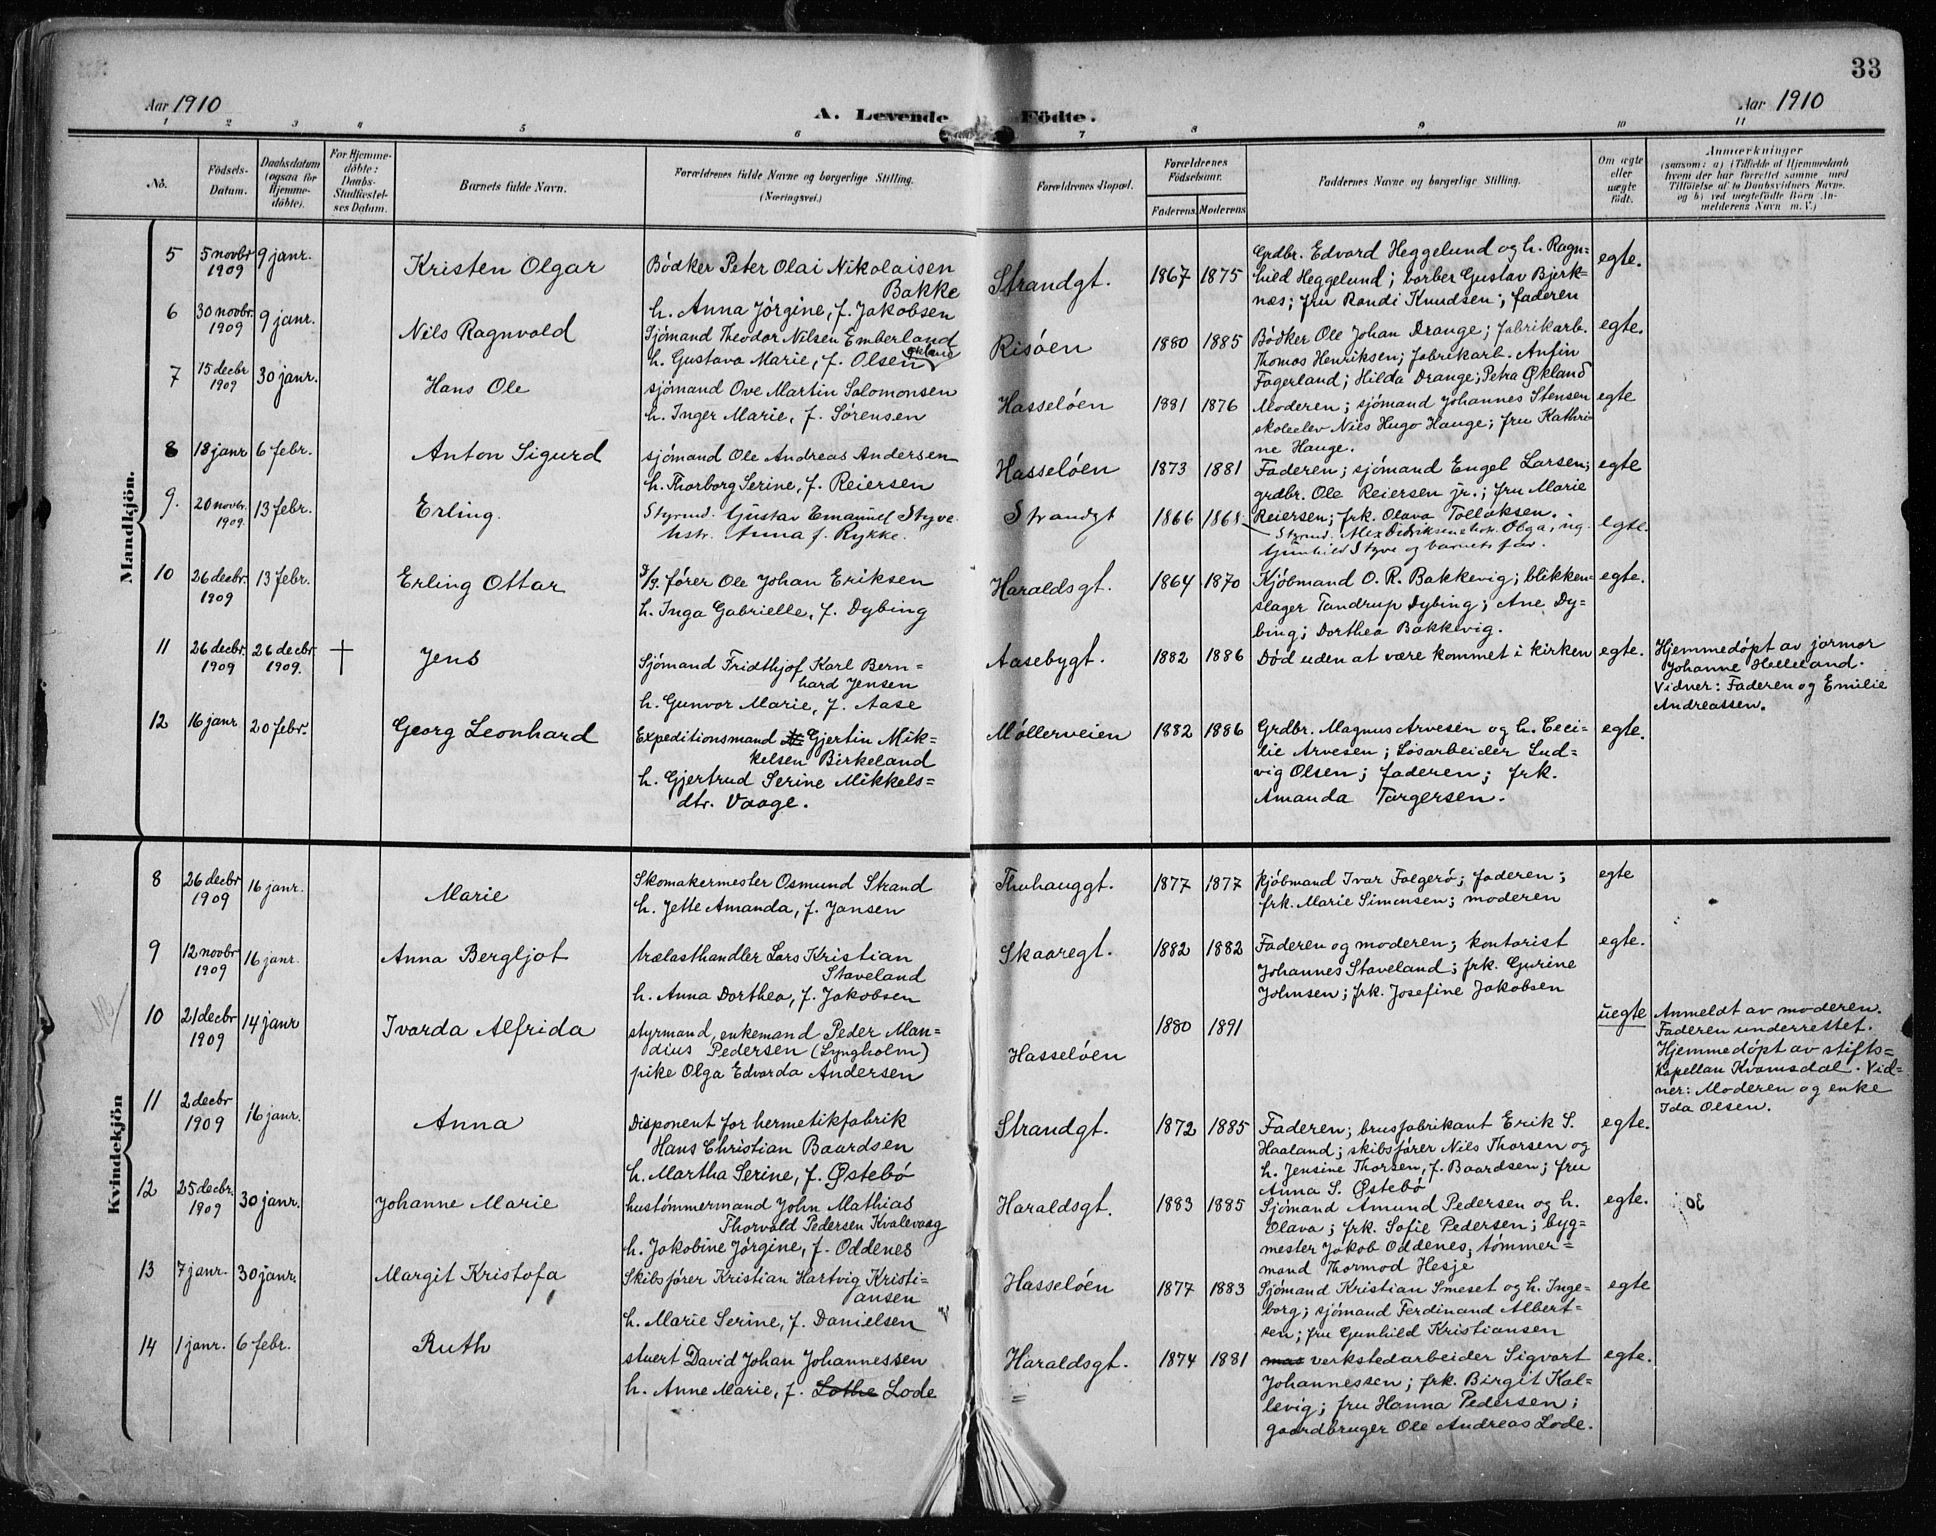 33
Aar 1910
A. Levende Födte.
Aar 1910
1 2 3 4 5 6 7 8 9 10 11
No.
Födsels-Datum.
Daabsdatum (ogsaa for Hjemme-döbte).
For Hjemme-döbte: Daabs-Stadfæstel-ses Datum.
Barnets fulde Navn.
Forældrenes fulde Navne og borgerlige Stilling. (Næringsvei.)
Forældrenes Bopæl.
Forældrenes Födselsaar.
Faderens Moderens
Faddernes Navne og borgerlige Stilling.
Om ægte eller uægte födt.
Anmærkninger
(saasom: a) i Tilfælde af Hjemmedaab
hvem der har forrettet samme med
Tilföielse af to Daabsvidners Navne.
og b) ved uægtefödte Börn An-
melderens Navn m. V.)
Mandkjön.
5 5 novbr 1909 9 janr. Kristen Olgar
Bödker Peter Olai Nikolaisen
Bakke
h. Anna Jörgine, f. Jakobsen
Strandgt. 1867 1875
Grdbr. Edvard Heggelund og h. Ragn-
hild Heggelund; barber Gustav Bjerk-
næs; fru Randi Knudsen; faderen
egte.
6 30 novbr. 1909 9 janr. Nils Ragnvald
Sjömand Theodor Nilsen Emberland
h. Gustava Marie, f. Olsen Økland
Risöen 1880 1885
Bödker Ole Johan Drange; fabrikarb.
Thomas Henriksen; fabrikarb. Anfin
Fagerland; Hilda Drange; Petra Økland
egte.
7 15 decbr 1909 30 janr. Hans Ole
sjömand Ove Martin Salomonsen
h. Inger Marie, f. Sørensen
Hasselöen 1881 1876
Moderen; sjömand Johannes Stensen
skoleelev Nils Hugo Hauge; fru Kathri
ne Hauge.
egte
8 18 janr 6 febr. Anton Sigurd
sjömand Ole Andreas Andersen
h. Thorborg Serine, f. Reiersen
Hasselöen 1873 1881
Faderen; sjömand Engel Larsen;
grdbr. Ole Reiersen jr.; fru Marie
Reiersen; frk. Olava Tollaksen.
egte
9. 20 novbr. 1909. 13 febr. Erling.
Styrmd. Gustav Emanuel Styve.
hstr. Anna f. Rykke.
Strandgt 1866 1868
Styrmd. Alex Didriksen hstr. Olga, ug.
Gunhild Styve og barnets far.
egte.
10 26 decbr. 1909 13 febr. Erling Ottar
d/s. förer Ole Johan Eriksen
h. Inga Gabrielle, f. Dybing
Haraldsgt. 1864 1870
Kjöbmand O. R. Bakkevig; blikken-
slager Tandrup Dybing; Ane Dy-
bing; Dorthea Bakkevig.
egte.
11 26 decbr. 1909 26 decbr. 1909. † Jens
Sjömand Fridthjof Karl Bern-
hard Jensen
h. Gunvor Marie, f. Aase
Aasebygt. 1882 1886
Död uden at være kommet i kirken
egte.
Hjemmedöpt av jormor
Johanne Helleland.
Vidner: Faderen og Emilie
Andreassen.
12 16 janr 20 febr. Georg Leonhard
Expeditionsmand Gjertin Mik-
kelsen Birkeland
h. Gjertrud Serine Mikkels=
dtr. Vaage.
Møllerveien 1882 1886
Grdbr. Magnus Arvesen og h. Ceci-
lie Arvesen; Lösarbeider Lud-
vig Olsen; faderen; frk.
Amanda Torgersen.
egte.
Kvindekjön
8 26 decbr 1909 16 janr. Marie
Skomakermester Osmund Strand
h. Jette Amanda, f. Jansen
Thuhauggt. 1877 1877
Kjöbmand Ivar Falgerö; faderen;
frk. Marie Simonsen; moderen
egte
9 12 novbr 1909 16 janr. Anna Bergljot
trælasthandler Lars Kristian
Staveland
h. Anna Dorthea, f. Jakobsen
Skaaregt. 1882 1882
Faderen og moderen; kontorist
Johannes Staveland; frk. Gurine
Johnsen; frk. Josefine Jakobsen
egte.
10 21 decbr 1909 14 janr Ivarda Alfrida
styrmand, enkemand Peder Man-
dius Pedersen (Lyngholm)
pike Olga Edvarda Andersen
Hasselöen 1880 1891
uegte
Anmeldt av moderen.
Faderen underrettet.
Hjemmedöpt av stifts=
kapellan Kvamsdal. Vid-
ner: Moderen og enke
Ida Olsen.
11 2 decbr 1909 16 janr. Anna
Disponent for hermetikfabrik
Hans Christian Baardsen
h. Martha Serine, f. Østebö
Strandgt. 1872 1885
Faderen; brusfabrikant Erik S.
Haaland; skibsförer Nils Thorsen og
h. Jensine Thorsen, f. Baardsen; fru
Anna S. Østebö
egte.
12 25 decbr. 1909 30 janr. Johanne Marie
hustömmermand John Mathias
Thorvald Pedersen Kvalevaag
h. Jakobine Jörgine, f. Oddenes
Haraldsgt. 1883 1885
Sjömand Amund Pedersen og h.
Olava; frk. Sofie Pedersen; byg-
mester Jakob Oddenes, tömmer=
mand Thormod Hesje
egte.
13 7 janr. 30 janr. Margit Kristofa
Skibsförer Kristian Hartvig Kristi-
ansen
h. Marie Serine, f. Danielsen
Hasselöen 1877 1883
Sjömand Kristian Smeset og h. Inge-
borg; sjömand Ferdinand Albert-
sen; fru Gunhild Kristiansen
egte
14 1 janr. 6 febr. Ruth
stuert David Johan Johannessen
h. Anne Marie, f. Lothe Lode
Haraldsgt. 1874 1881
mas verkstedarbeider Sigvart
Johannessen; frk. Birgit Kal-
levig; fru Hanna Pedersen;
gaardbruger Ole Andreas Lode.
egte.